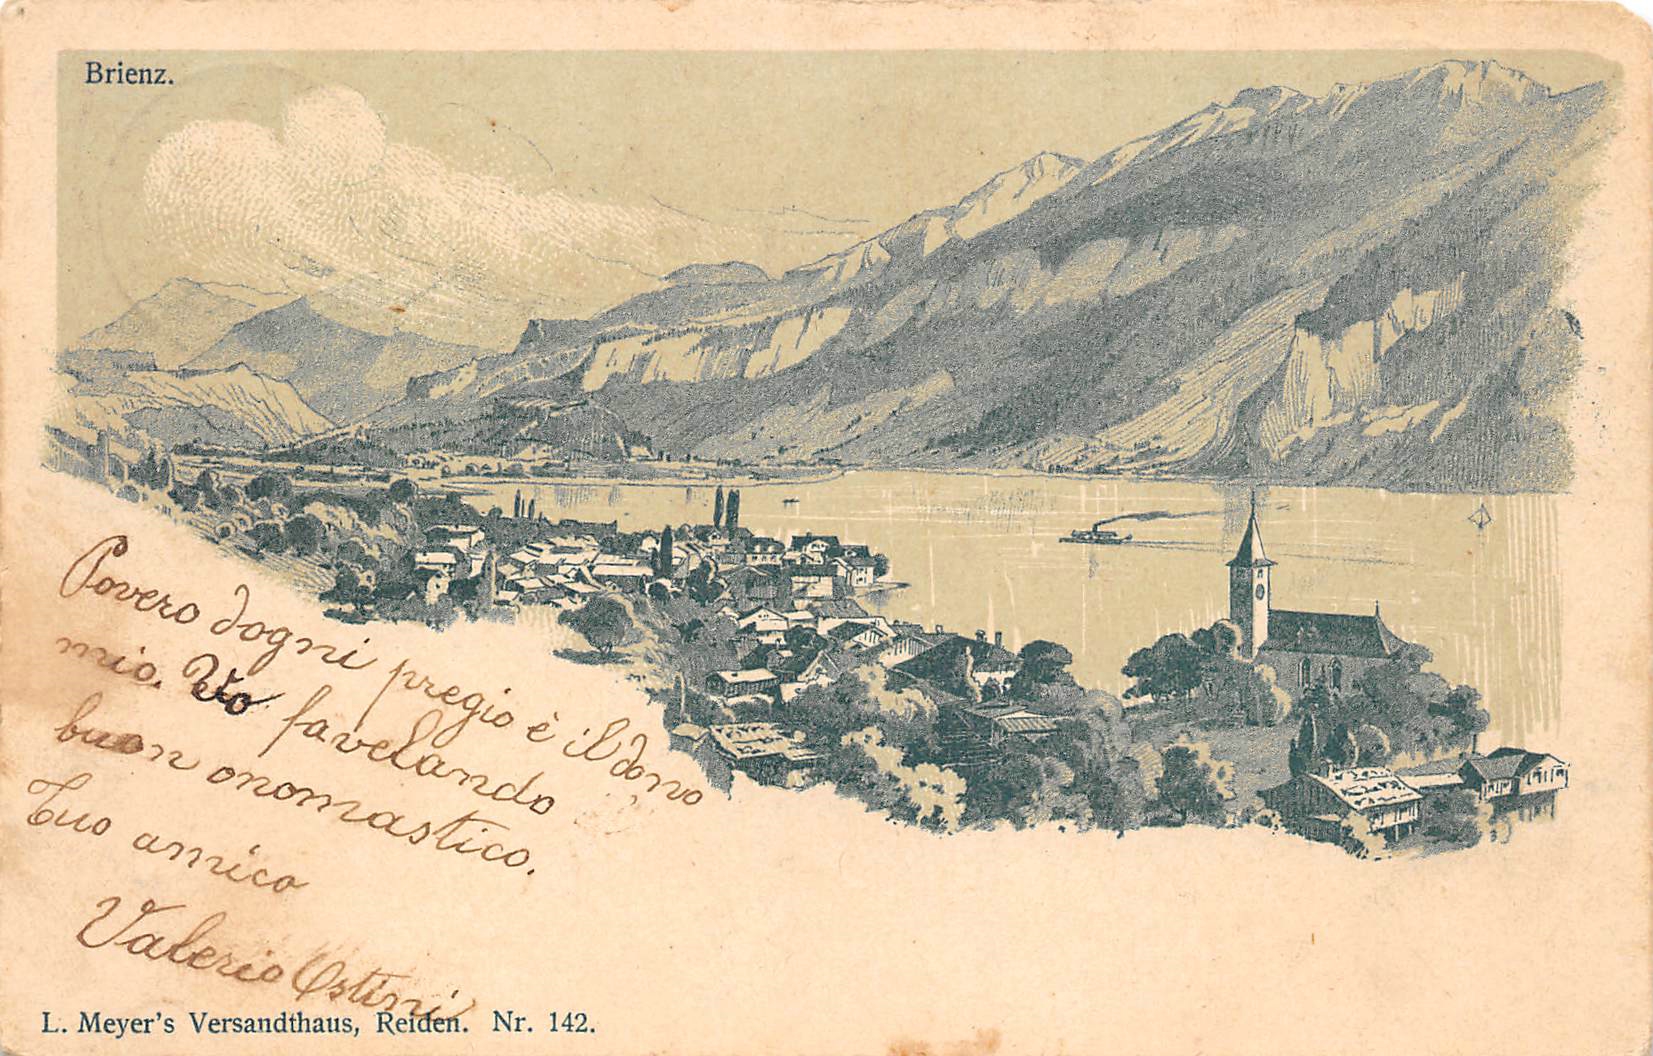 Brienz.
Povero d'ogni pregio è il dono
mio. Vo favelando
buon onomastico.
Tuo amico
Valerio Ostini
L. Meyer's Versandthaus, Reiden. Nr. 142.